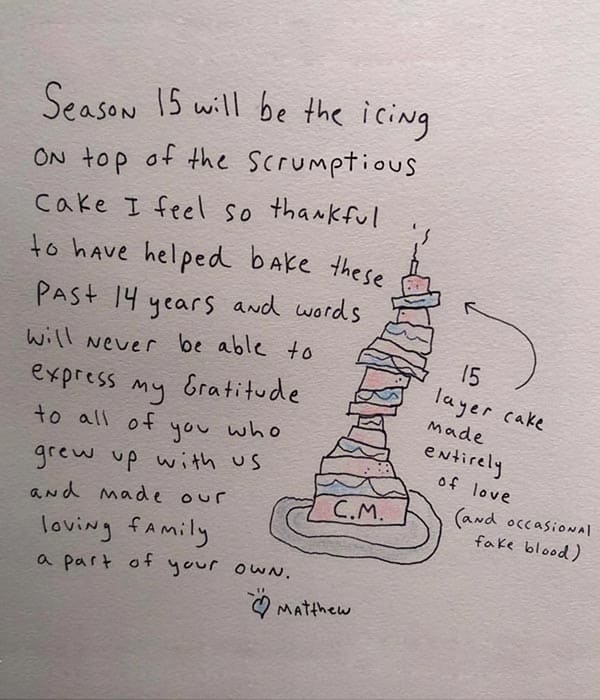 Season 15 will be the icing
on top of the scrumptious
cake I feel so thankful
to have helped bake these
past 14 years and words
will never be able to
express my Gratitude
to all of you who
grew up with us
and made our
loving family
a part of your own.
Matthew
C.M.
15
layer cake
made
entirely
of love
(and occasional
fake blood)